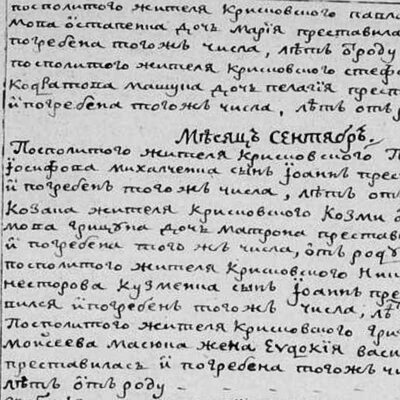 посполитого жителя Крисковского павла
мова ѻстапенка дочь марїя преставила
погребена того жъ числа, лѣтъ ѿ роду
посполитого жителя крисковского стеф
Кодратова машуна дочь пелагїя прест
й погребена тогожъ числа, лѣтъ ѿ р
Мѣсяцъ Сентябръ.
Посполитого жителя Крисковского
Їосифова михалченка сынъ Їоаннъ прес
й погребенъ тогожъ числа, лѣтъ от
Козака жителя Крисковского Козми
мова грицуна дочь матрона престав
й погребена того жъ числа, ѿтъ роду
посполитого жителя Крисковского Ники
несторова кузменка сынъ Їоаннъ пре
вился й погребенъ тогожъ числа, лѣ
Посполитого жителя Крисковского гри
Моѵсеева масюка жена Еѵдокїя васи
преставилась й погребена тогожъ чи
лѣтъ ѿтъ роду